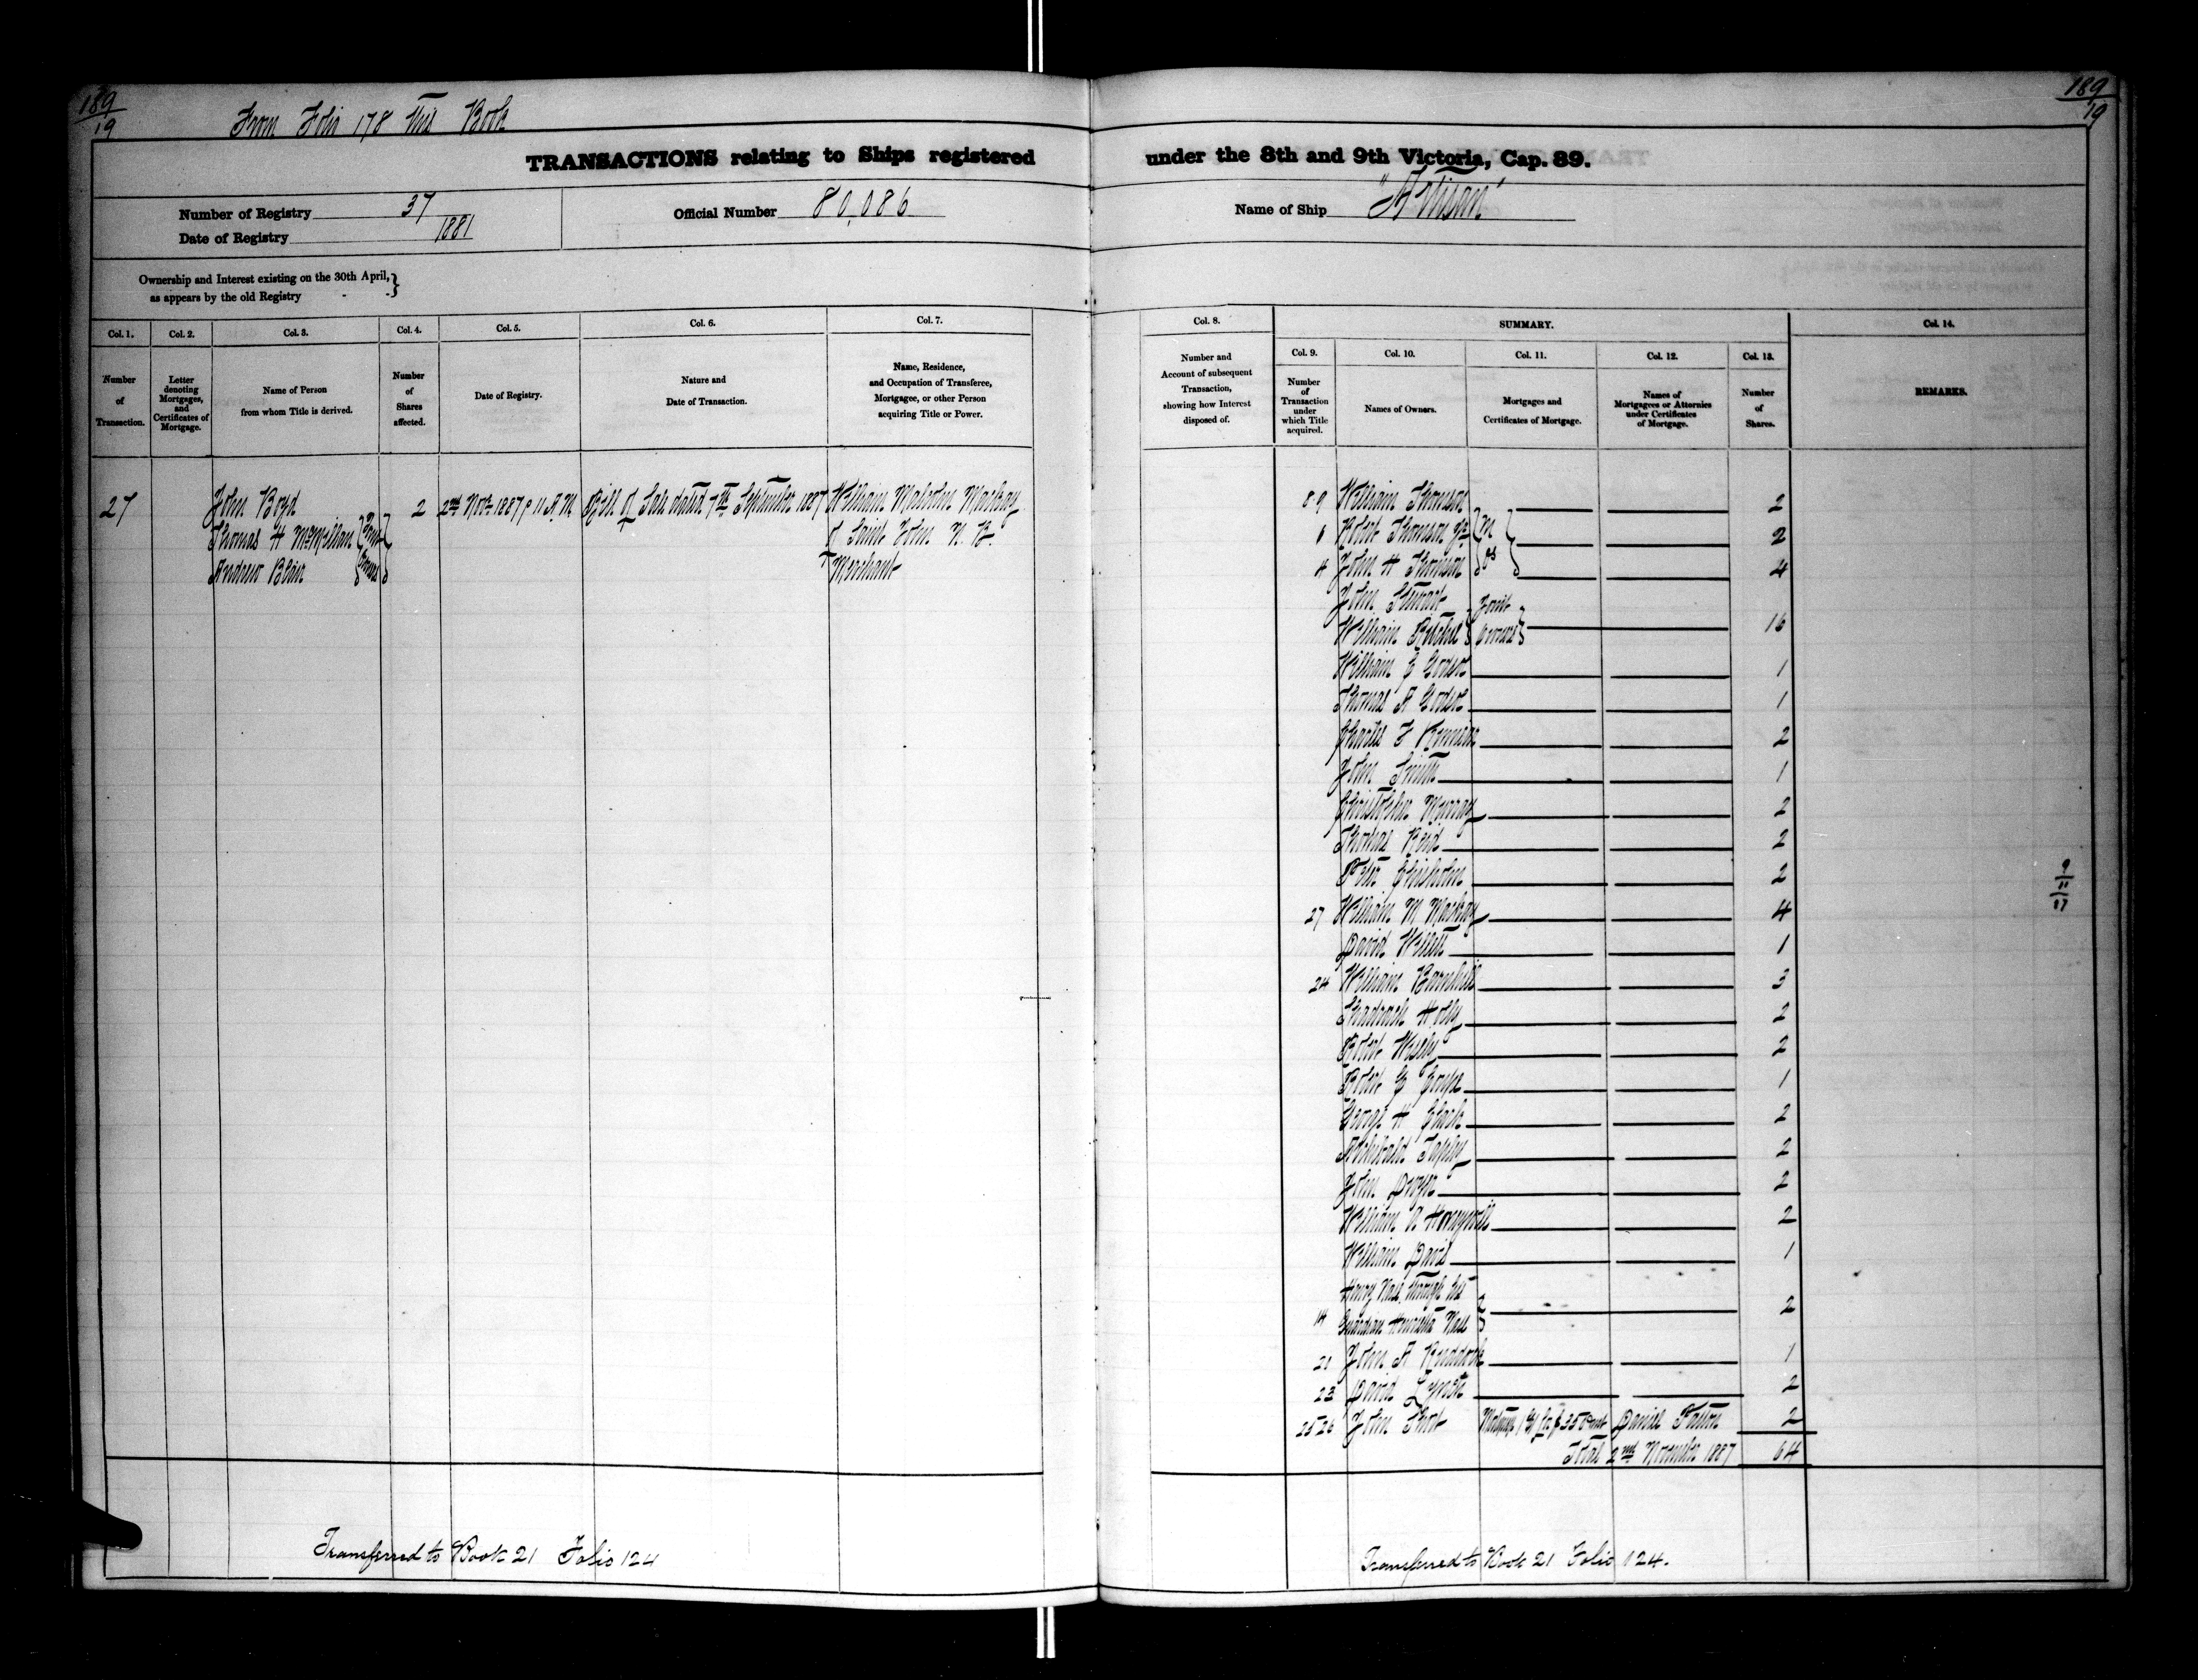 189
19
From Folio 178 this Book
TRANSACTIONS relating to Ships registered
Number of Registry 37
Date of Registry 1881
Official Number 80,086
Ownership and Interest existing on the 30th April,
as appears by the old Registry - -
Col. 1.
Number
of
Transaction.
Col. 2.
Letter
denoting
Mortgages,
and
Certificates of
Mortgage.
Col. 3.
Name of Person
from whom Title is derived.
Col. 4.
Number
of
Shares
affected.
Col. 5.
Date of Registry.
Col. 6.
Nature and
Date of Transaction.
Col. 7.
Name, Residence,
and Occupation of Transferee,
Mortgagee, or other Person
acquiring Title or Power.
27 John Boyd 2 2nd Novr 1887 11 A.M. Bill of Sale dated 7th September 1887 William Malcolm Mackay
Thomas H McMillan Joint of Saint John N. B.
Andrew Blair Owners Merchant
Transferred to Book 21 Folio 124
189
19
under the 8th and 9th Victoria, Cap. 89.
Name of Ship "Artisan"
Col. 8.
Number and
Account of subsequent
Transaction,
showing how Interest
disposed of.
SUMMARY.
Col. 9.
Number
of
Transaction
under
which Title
acquired.
Col. 10.
Names of Owners.
Col. 11.
Mortgages and
Certificates of Mortgage.
Col. 12.
Names of
Mortgagees or Attornies
under Certificates
of Mortgage.
Col. 13.
Number
of
Shares.
Col. 14.
REMARKS.
8.9 William Thomson 2
6 Robert Thomson Jr M 2
4 John H Thomson os 4
John Stewart Joint
William Ritchie Owners 16
William E 1
Thomas A 1
Charles F Kinnear 2
John Smith 1
Christopher Murray 2
Thomas Reid 2
Chisholm 2
27 William M Mackay 4
David Willett 1
24 William Barnhill 3
Shadrach Holly 2
Robert Wisely 2
Robert G 1
George H Clark 2
Archibald Tapley 2
John Dwyer 2
William A Honeywill 2
William Davis 1
Henry Nase through his
14 Guardian Henrietta Nase 2
21 John A Ruddock 1
23 David Lynch 2
25 26 John Short Mortgage for $350 Daniel Patton 2
Total 2nd November 1887 64
9
11
17
Transferred to Book 21 Folio 124.